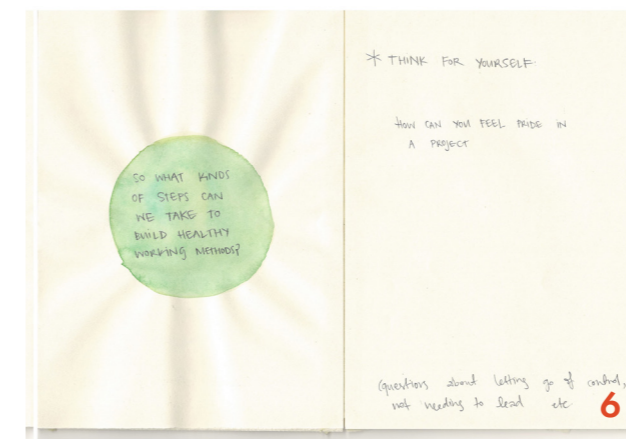 SO WHAT KINDS
OF STEPS CAN
WE TAKE TO
BUILD HEALTHY
WORKING METHODS?
* THINK FOR YOURSELF.
HOW CAN YOU FEEL PRIDE IN
A PROJECT
(questions about letting go of control,
not needing to lead etc
6